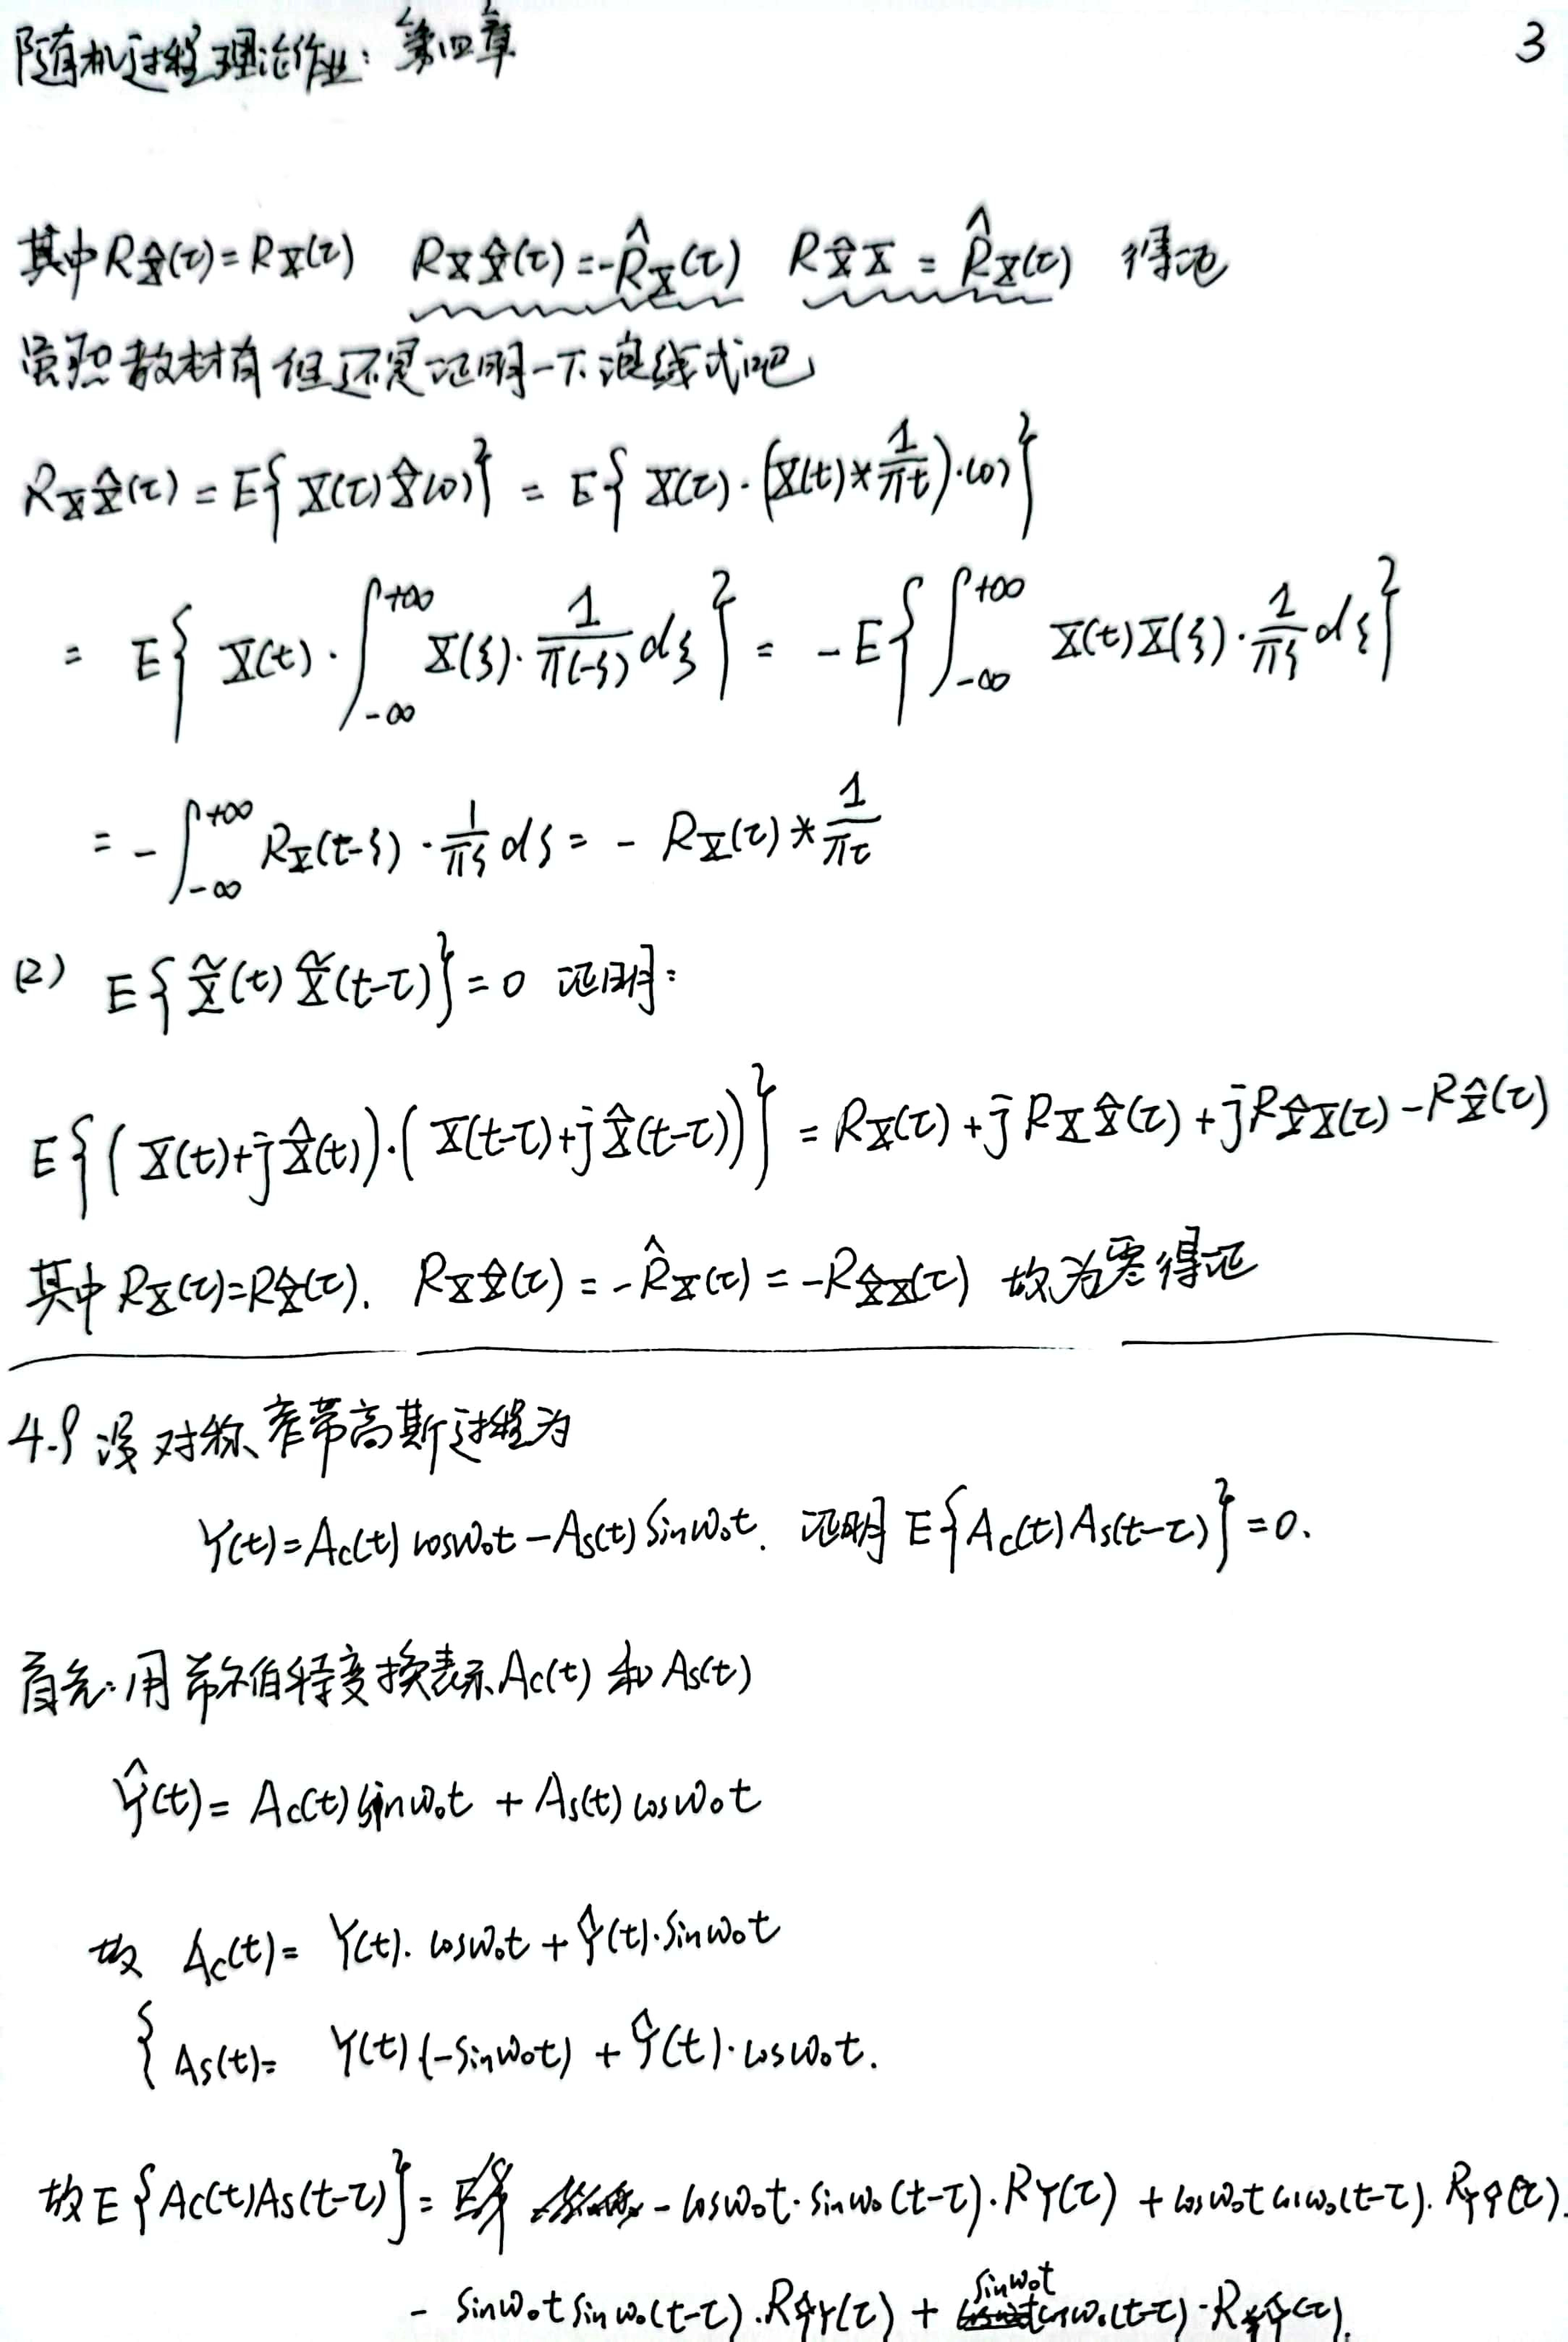 随机过程理论作业：第四章 3
其中 R_X̂(τ) = R_X(τ) R_XX̂(τ) = -R̂_X(τ) R_X̂X = R̂_X(τ) 得证
虽然教材有但还是证明一下浪线式吧
R_XX̂(τ) = E{X(τ)X̂(0)} = E{X(τ)·(X(t)*1/(πt))·(0)}
= E{X(t)·∫_{-∞}^{+∞} X(ξ)·1/(π(-ξ)) dξ} = -E{∫_{-∞}^{+∞} X(t)X(ξ)·1/(πξ) dξ}
= -∫_{-∞}^{+∞} R_X(t-ξ)·1/(πξ) dξ = -R_X(τ)*1/(πτ)
(2) E{X̃(t)X̃(t-τ)} = 0 证明：
E{(X(t)+jX̂(t))·(X(t-τ)+jX̂(t-τ))} = R_X(τ)+jR_XX̂(τ)+jR_X̂X(τ)-R_X̂(τ)
其中 R_X(τ)=R_X̂(τ). R_XX̂(τ) = -R̂_X(τ) = -R_X̂X(τ) 故为零得证
4.9 设对称窄带高斯过程为
Y(t)=Ac(t)cosω₀t-As(t)sinω₀t. 证明 E{Ac(t)As(t-τ)}=0.
首先：用希尔伯特变换表示Ac(t) 和 As(t)
Ŷ(t)= Ac(t)sinω₀t + As(t)cosω₀t
故 Ac(t)= Y(t)·cosω₀t+Ŷ(t)·sinω₀t
{ As(t)= Y(t)(-sinω₀t) + Ŷ(t)·cosω₀t.
故E{Ac(t)As(t-τ)}= -cosω₀t·sinω₀(t-τ)·R_Y(τ) + cosω₀t cosω₀(t-τ)·R_YŶ(τ).
- sinω₀t sinω₀(t-τ)·R_ŶY(τ) + sinω₀t cosω₀(t-τ)·R_Ŷ(τ).